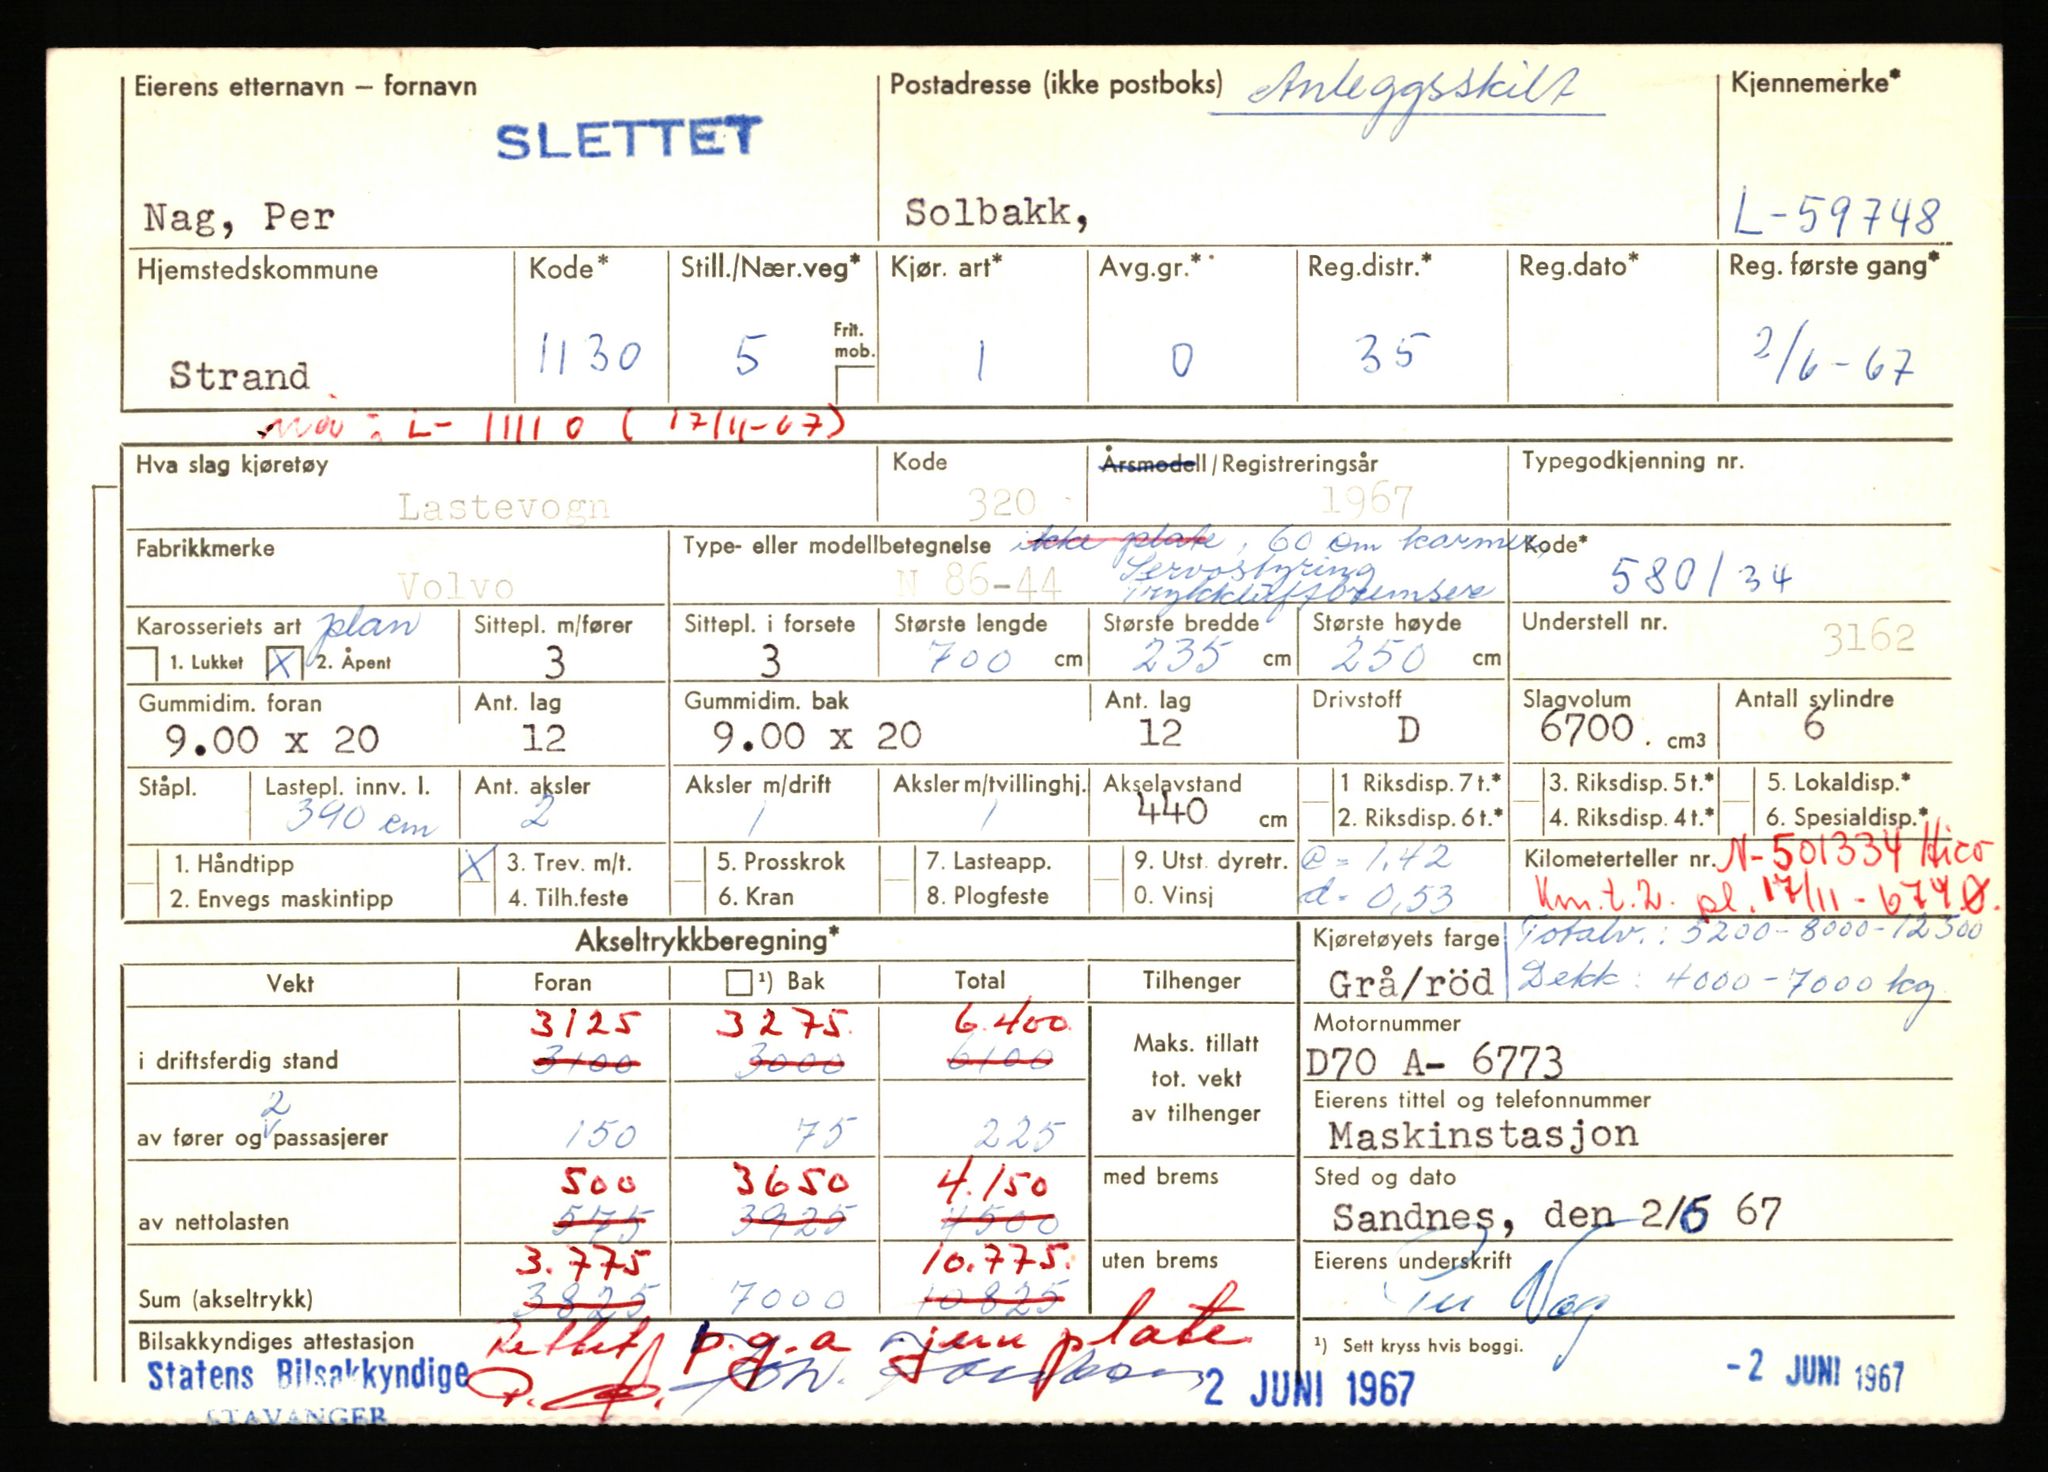 Eierens etternavn – fornavn
SLETTET
Nag, Per
Postadresse (ikke postboks) Anleggsskilt
Solbakk,
Kjennemerke*
L-59748
Hjemstedskommune
Strand
Kode*
1130
Still./Nær.veg*
5
Frit. mob.
Kjør. art*
1
Avg.gr.*
0
Reg.distr.*
35
Reg.dato*
Reg. første gang*
2/6-67
Nå: L-11110 (17/11-67)
Hva slag kjøretøy
Lastevogn
Kode
320
Årsmodell/Registreringsår
1967
Typegodkjenning nr.
Fabrikkmerke
Volvo
Type- eller modellbetegnelse ikke plate, 60 cm karmer,
Servostyring
N 86-44 Trykkluftbremser
Kode*
580/34
Karosseriets art plan
1. Lukket X 2. Åpent
Sittepl. m/fører
3
Sittepl. i forsete
3
Største lengde
700 cm
Største bredde
235 cm
Største høyde
250 cm
Understell nr.
3162
Gummidim. foran
9.00 x 20
Ant. lag
12
Gummidim. bak
9.00 x 20
Ant. lag
12
Drivstoff
D
Slagvolum
6700. cm3
Antall sylindre
6
Ståpl.
Lastepl. innv. l.
390 cm
Ant. aksler
2
Aksler m/drift
1
Aksler m/tvillinghj.
1
Akselavstand
440 cm
1 Riksdisp. 7 t.*
2. Riksdisp. 6 t.*
3. Riksdisp. 5 t.*
4. Riksdisp. 4 t.*
5. Lokaldisp.*
6. Spesialdisp.*
1. Håndtipp
2. Envegs maskintipp
X 3. Trev. m/t.
4. Tilh.feste
5. Prosskrok
6. Kran
7. Lasteapp.
8. Plogfeste
9. Utst. dyretr.
0. Vinsj
e = 1,42
d = 0,53
Kilometerteller nr. N-501334 Hico
Km.t. 2. pl. 17/11-67
Akseltrykkberegning*
Kjøretøyets farge
Grå/röd
Totalv.: 5200-8000-12500
Dekk: 4000-7000 kg
Vekt Foran ¹) Bak Total Tilhenger
3125 3275. 6.400
i driftsferdig stand 3100 3000 6100
Maks. tillatt
tot. vekt
av tilhenger
2
av fører og passasjerer 150 75 225
500 3650 4.150
av nettolasten 575 3925 4500
med brems
3.775 10.775.
Sum (akseltrykk) 3825 7000 10825
uten brems
Motornummer
D70 A- 6773
Eierens tittel og telefonnummer
Maskinstasjon
Sted og dato
Sandnes, den 2/6 67
Eierens underskrift
Per Nag
Bilsakkyndiges attestasjon Rettet p.g.a jern plate
Statens Bilsakkyndige
STAVANGER
2 JUNI 1967
¹) Sett kryss hvis boggi.
-2 JUNI 1967